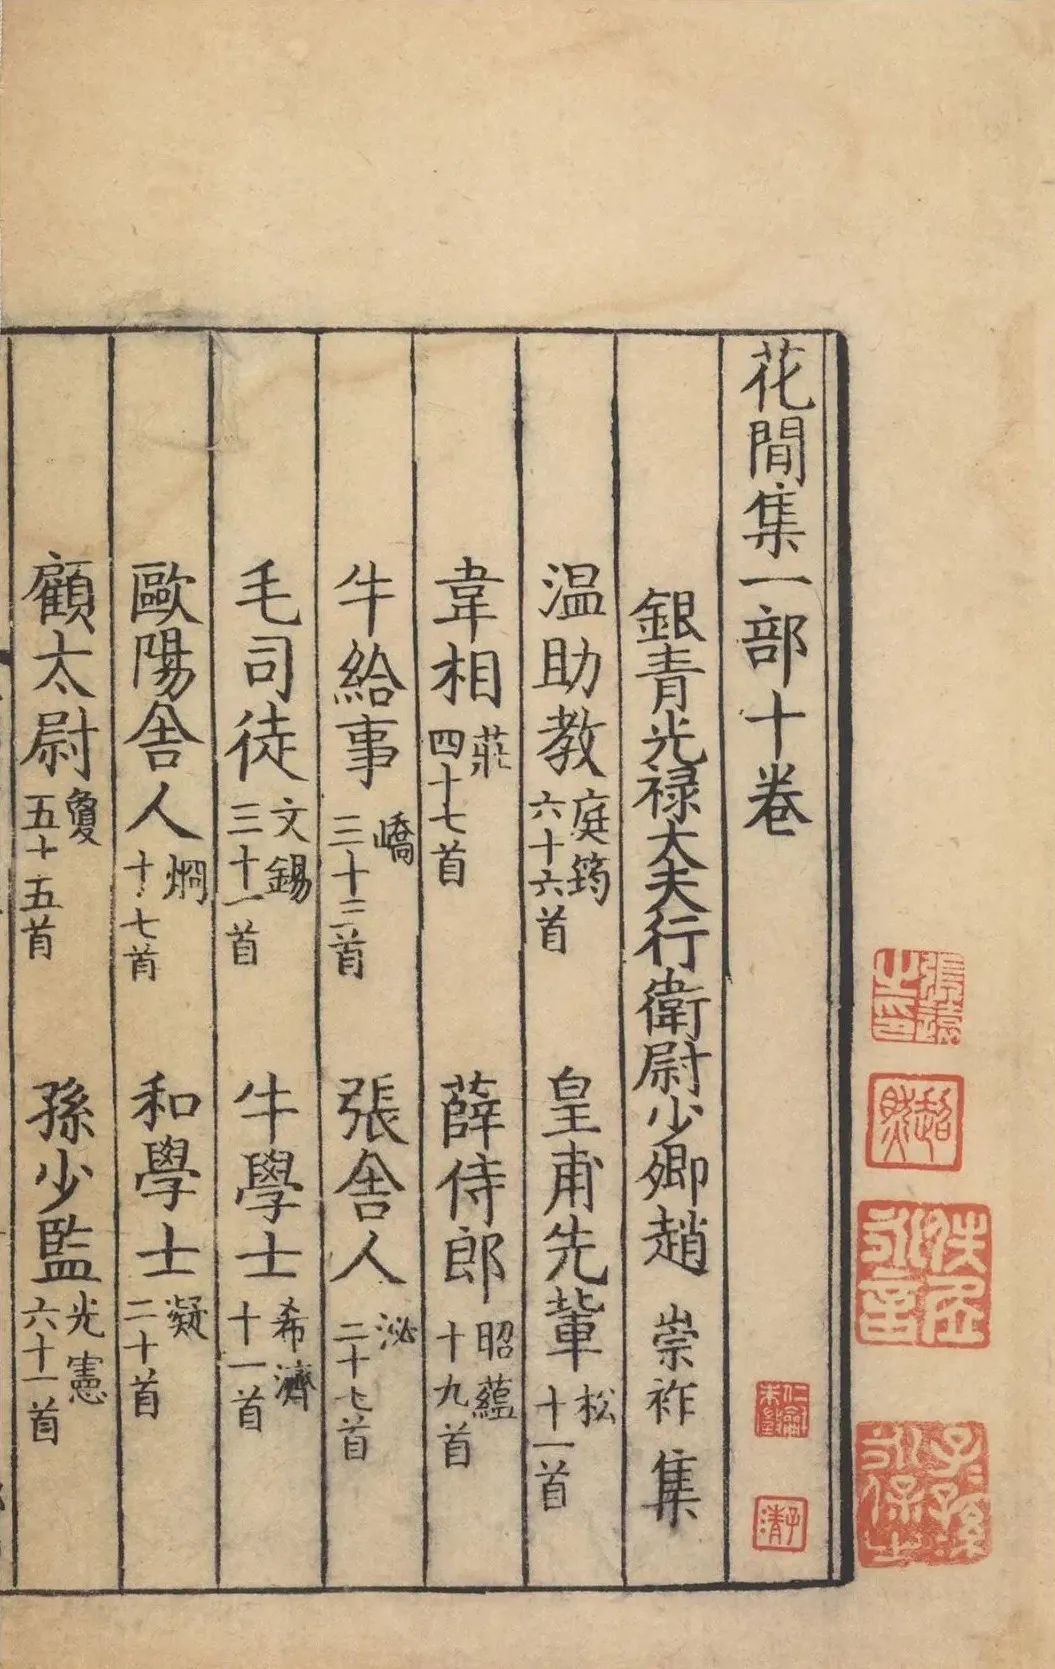 花閒集一部十卷
銀青光禄大夫行衛尉少卿趙 崇祚 集
温助教庭筠六十六首 皇甫先輩松十一首
韋相莊四十七首 薛侍郎昭蘊十九首
牛給事嶠三十三首 張舍人泌二十七首
毛司徒文錫三十一首 牛學士希濟十一首
歐陽舍人烱十七首 和學士凝二十首
顧太尉敻五十五首 孫少監光憲六十一首
子孫永保